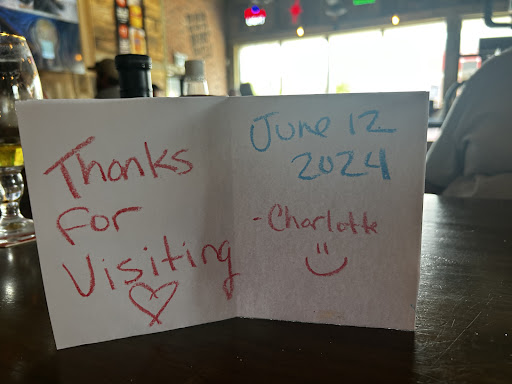 Thanks
For
Visiting
June 12
2024
- Charlotte